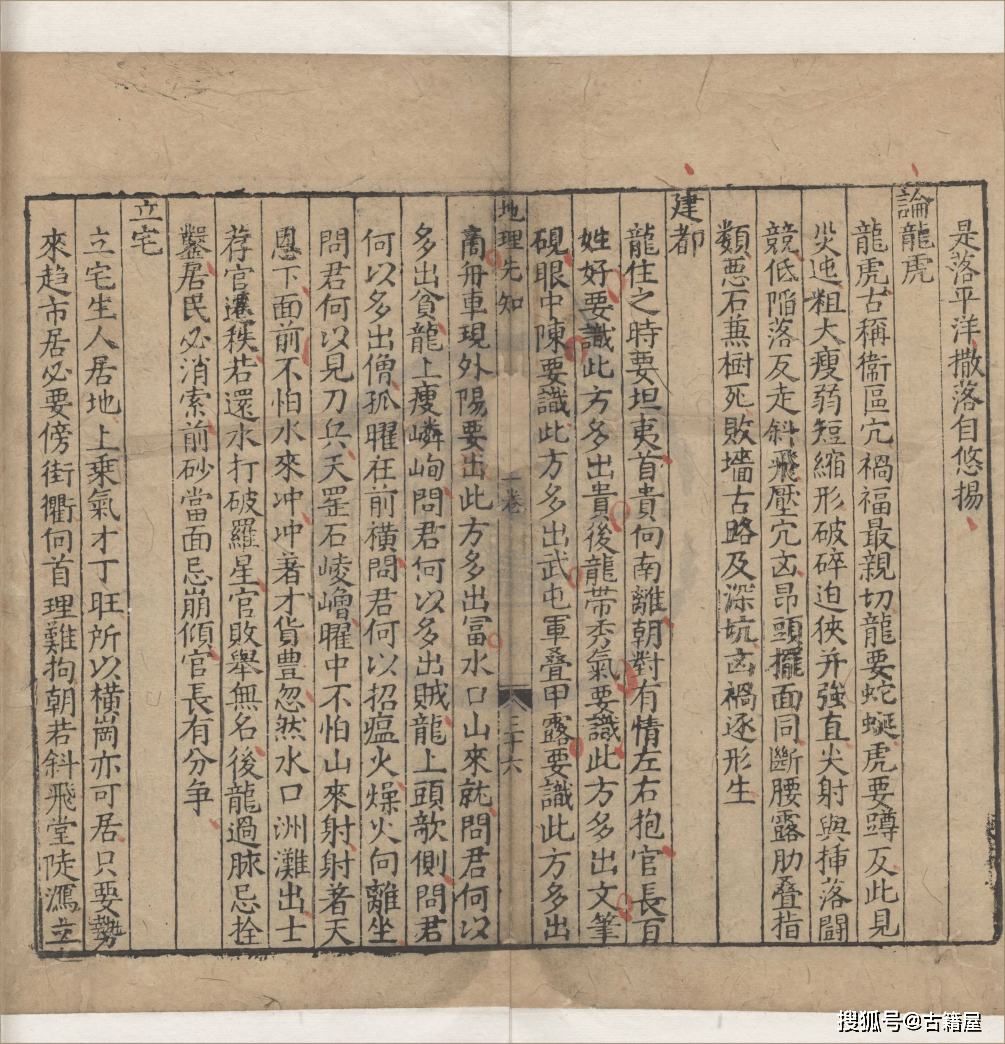 是落平洋撒落自悠揚
論龍虎
龍虎古稱衛區穴禍福最親切龍要蛇蜒虎要蹲反此見
災迍粗大瘦弱短縮形破碎迫狹并強直尖射與挿落鬪
競低陷落反走斜飛壓穴凶昂頭擺面同斷腰露肋叠指
類惡石兼樹死敗墻古路及深坑凶禍逐形生
建都
龍住之時要坦夷首貴向南離朝對有情左右抱官長百
姓好要識此方多出貴後龍帶秀氣要識此方多出文筆
硯眼中陳要識此方多出武屯軍叠甲露要識此方多出
地理先知
一卷
三十六
商冊車現外陽要出此方多出冨水口山來就問君何以
多出貧龍上瘦嶙峋問君何以多出賊龍上頭歆側問君
何以多出僧孤曜在前橫問君何以招瘟火燥火向離坐
問君何以見刀兵天罡石崚嶒曜中不怕山來射射著天
恩下面前不怕水來冲冲著才貨豊忽然水口洲灘出士
荐官遷秩若還水打破羅星官敗舉無名後龍過脉忌拴
鑿居民必消索前砂當面忌崩傾官長有分争
立宅
立宅生人居地上乘氣才丁旺所以橫崗亦可居只要勢
來趋市居必要傍街衢向首理難拘朝若斜飛堂陡瀉立
搜狐号@古籍屋